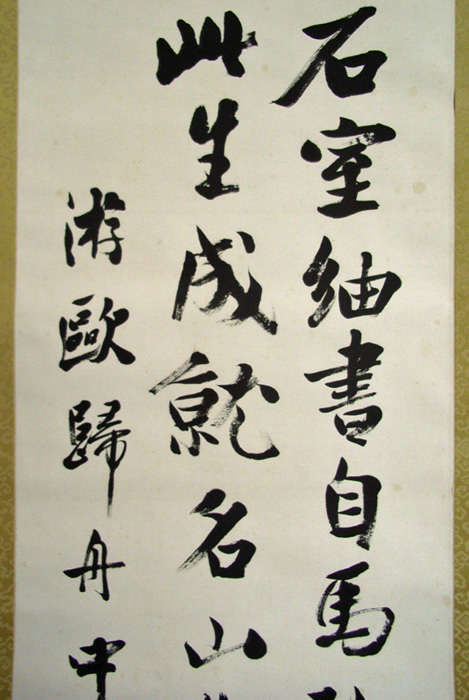 石室紬書自馬
此生成就名山
游歐歸舟中